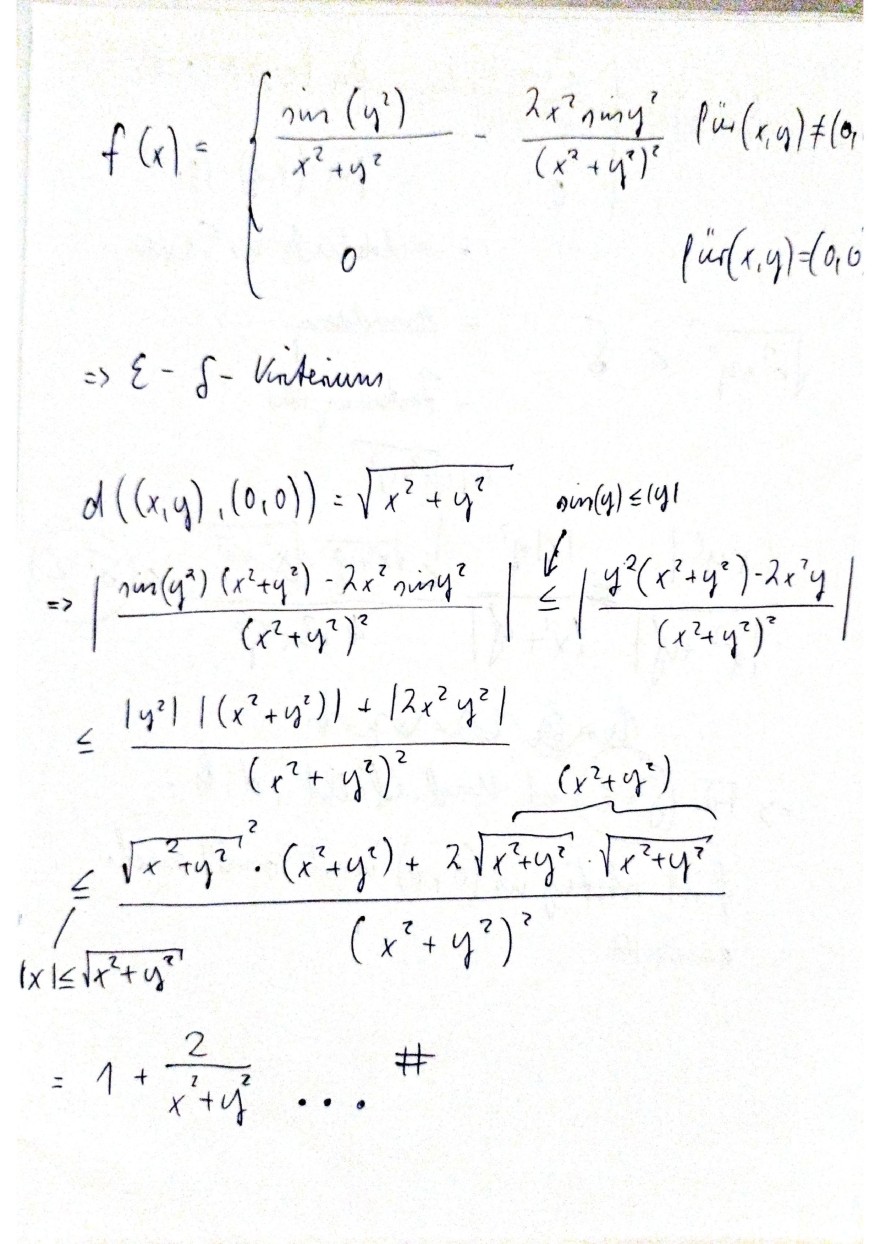 f(x) = { sin(y²)/(x²+y²) - 2x² sin y²/(x²+y²)² für (x,y) ≠ (0,
0 für (x,y)=(0,0
=> ε - δ - Kriterium
d((x,y),(0,0)) = √(x²+y²) sin(y) ≤ |y|
=> | (sin(y²)(x²+y²) - 2x² sin y²)/(x²+y²)² | ≤ | (y²(x²+y²) - 2x²y)/(x²+y²)² |
≤ (|y²| |(x²+y²)| + |2x²y²|)/(x²+y²)²
(x²+y²)
≤ (√(x²+y²)² · (x²+y²) + 2√(x²+y²) · √(x²+y²))/(x²+y²)²
|x| ≤ √(x²+y²)
= 1 + 2/(x²+y²) ... #